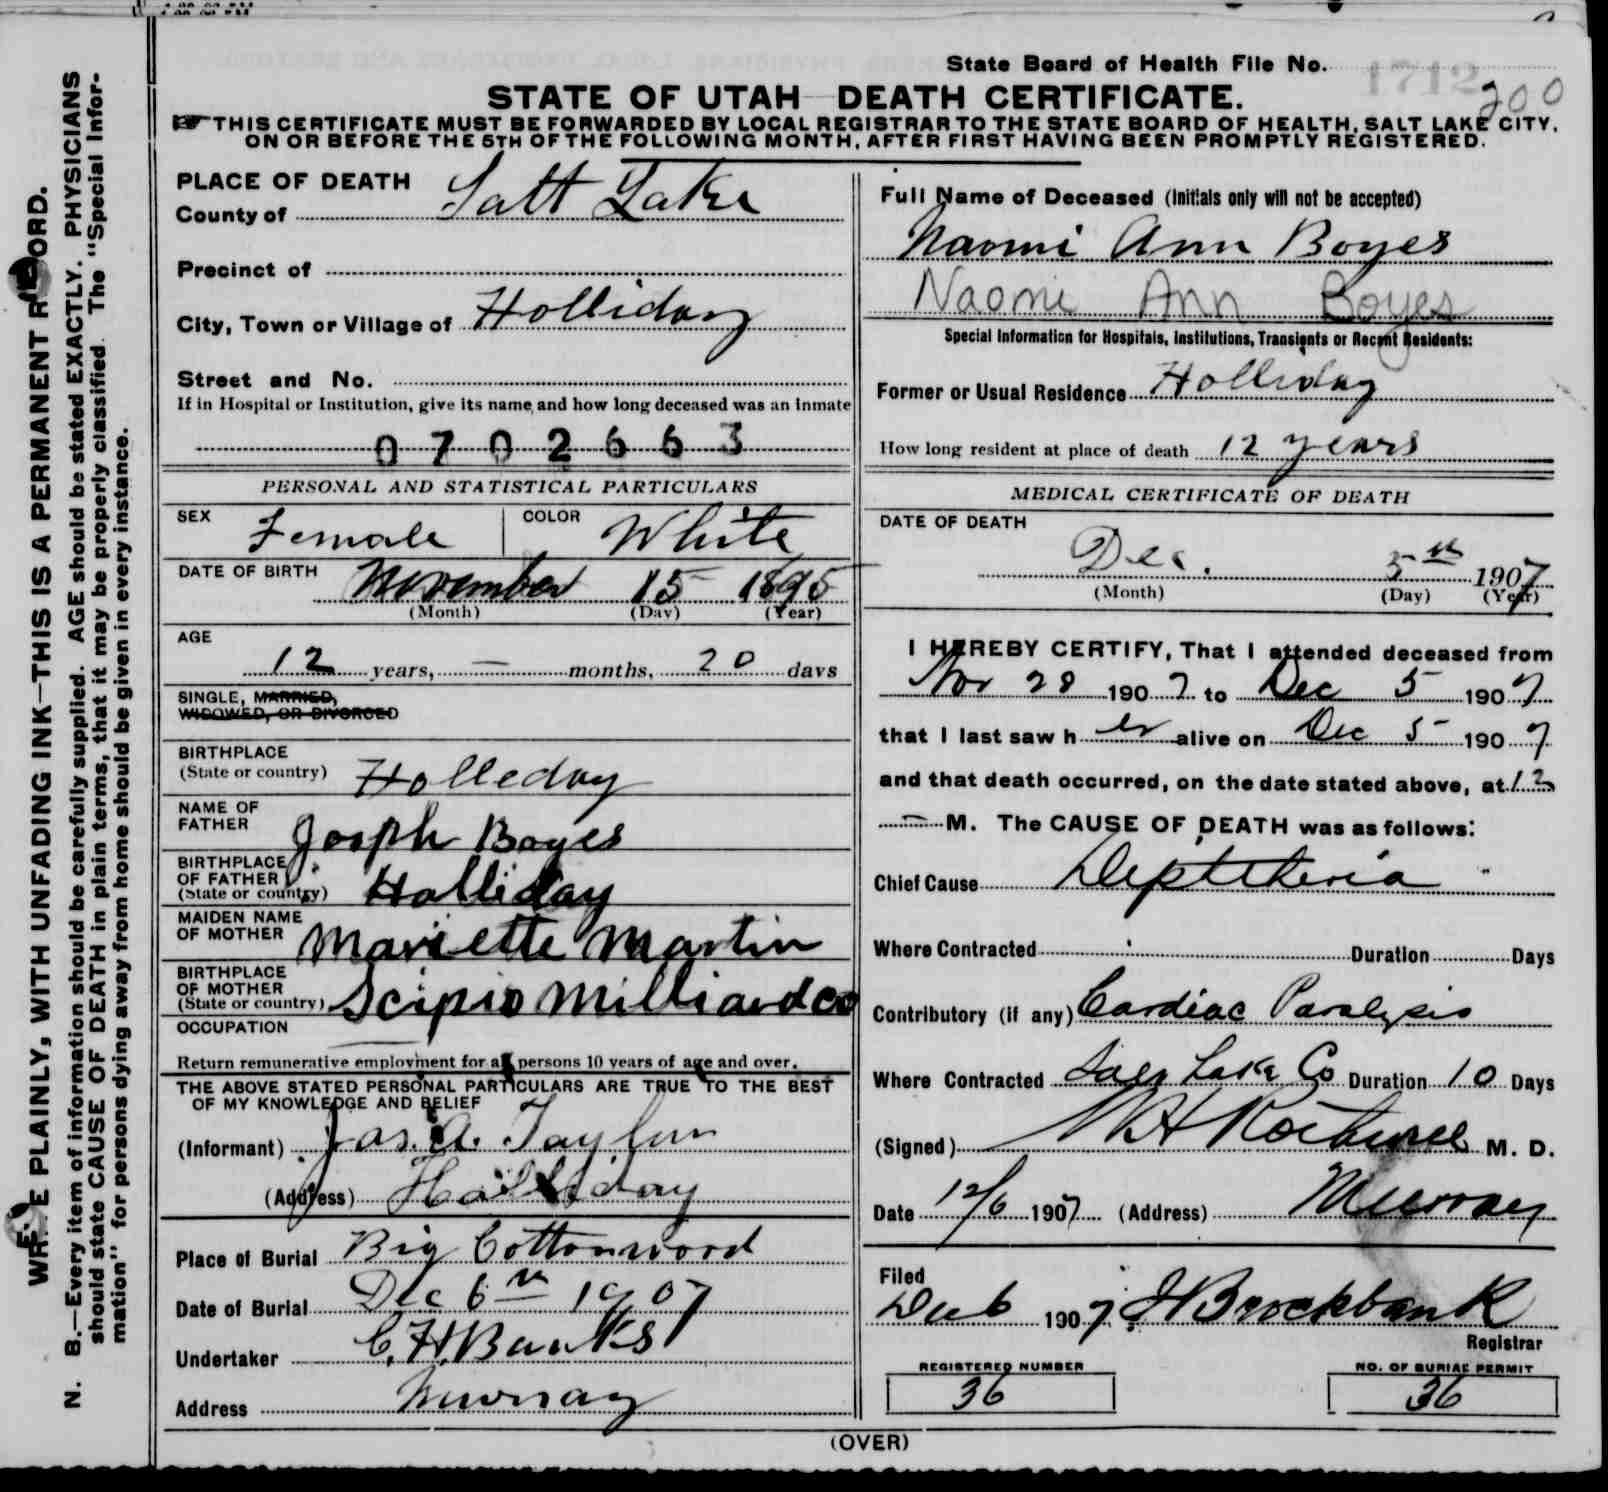 State Board of Health File No. 1712 200
STATE OF UTAH DEATH CERTIFICATE.
THIS CERTIFICATE MUST BE FORWARDED BY LOCAL REGISTRAR TO THE STATE BOARD OF HEALTH, SALT LAKE CITY,
ON OR BEFORE THE 5TH OF THE FOLLOWING MONTH, AFTER FIRST HAVING BEEN PROMPTLY REGISTERED.
WRITE PLAINLY, WITH UNFADING INK—THIS IS A PERMANENT RECORD.
N. B.—Every item of information should be carefully supplied. AGE should be stated EXACTLY. PHYSICIANS
should state CAUSE OF DEATH in plain terms, that it may be properly classified. The "Special Infor-
mation" for persons dying away from home should be given in every instance.
PLACE OF DEATH
County of Salt Lake
Precinct of
City, Town or Village of Holliday
Street and No.
If in Hospital or Institution, give its name and how long deceased was an inmate
0702663
PERSONAL AND STATISTICAL PARTICULARS
SEX Female COLOR White
DATE OF BIRTH November 15 1895
(Month) (Day) (Year)
AGE
12 years, — months, 20 days
SINGLE, MARRIED,
WIDOWED, OR DIVORCED
BIRTHPLACE
(State or country) Holleday
NAME OF
FATHER Josph Boyes
BIRTHPLACE
OF FATHER
(State or country) Holliday
MAIDEN NAME
OF MOTHER Mariette Martin
BIRTHPLACE
OF MOTHER
(State or country) Scipio Milliard co
OCCUPATION
Return remunerative employment for all persons 10 years of age and over.
THE ABOVE STATED PERSONAL PARTICULARS ARE TRUE TO THE BEST
OF MY KNOWLEDGE AND BELIEF
(Informant) Jas. A. Taylor
(Address) Halliday
Place of Burial Big Cottonwood
Date of Burial Dec 6th 1907
Undertaker C. H. Banks
Address Murray
Full Name of Deceased (Initials only will not be accepted)
Naomi Ann Boyes
Naomi Ann Boyes
Special Information for Hospitals, Institutions, Transients or Recent Residents:
Former or Usual Residence Holliday
How long resident at place of death 12 years
MEDICAL CERTIFICATE OF DEATH
DATE OF DEATH
Dec. 5th 1907
(Month) (Day) (Year)
I HEREBY CERTIFY, That I attended deceased from
Nov 28 1907 to Dec 5 1907
that I last saw her alive on Dec 5 1907
and that death occurred, on the date stated above, at 12
— M. The CAUSE OF DEATH was as follows:
Chief Cause Diptheria
Where Contracted Duration Days
Contributory (if any) Cardiac Paralysis
Where Contracted Salt Lake Co Duration 10 Days
(Signed) M. D.
Date 12/6 1907 (Address) Murray
Filed
Dec 6 1907 J Brockbank
Registrar
REGISTERED NUMBER
36
NO. OF BURIAL PERMIT
36
(OVER)